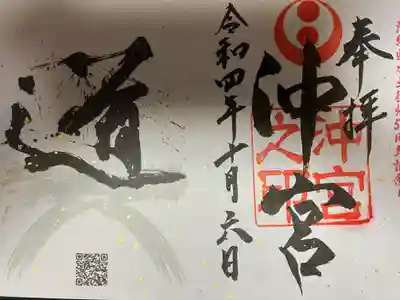 奉拝
沖宮
沖宮之印
令和四年十月六日
道